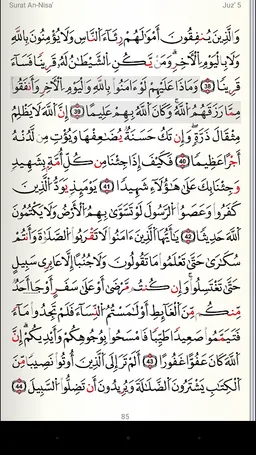 Surat An-Nisa' Juz' 5
وَالَّذِينَ يُنفِقُونَ أَمْوَالَهُمْ رِئَاءَ النَّاسِ وَلَا يُؤْمِنُونَ بِاللَّهِ
وَلَا بِالْيَوْمِ الْآخِرِ وَمَن يَكُنِ الشَّيْطَانُ لَهُ قَرِينًا فَسَاءَ
قَرِينًا 38 وَمَاذَا عَلَيْهِمْ لَوْ ءَامَنُوا بِاللَّهِ وَالْيَوْمِ الْآخِرِ وَأَنفَقُوا
مِمَّا رَزَقَهُمُ اللَّهُ وَكَانَ اللَّهُ بِهِمْ عَلِيمًا 39 إِنَّ اللَّهَ لَا يَظْلِمُ
مِثْقَالَ ذَرَّةٍ وَإِن تَكُ حَسَنَةً يُضَاعِفْهَا وَيُؤْتِ مِن لَّدُنْهُ
أَجْرًا عَظِيمًا 40 فَكَيْفَ إِذَا جِئْنَا مِن كُلِّ أُمَّةٍ بِشَهِيدٍ
وَجِئْنَا بِكَ عَلَى هَؤُلَاءِ شَهِيدًا 41 يَوْمَئِذٍ يَوَدُّ الَّذِينَ
كَفَرُوا وَعَصَوُا الرَّسُولَ لَوْ تُسَوَّى بِهِمُ الْأَرْضُ وَلَا يَكْتُمُونَ
اللَّهَ حَدِيثًا 42 يَا أَيُّهَا الَّذِينَ ءَامَنُوا لَا تَقْرَبُوا الصَّلَاةَ وَأَنتُمْ
سُكَارَى حَتَّى تَعْلَمُوا مَا تَقُولُونَ وَلَا جُنُبًا إِلَّا عَابِرِي سَبِيلٍ
حَتَّى تَغْتَسِلُوا وَإِن كُنتُم مَّرْضَى أَوْ عَلَى سَفَرٍ أَوْ جَاءَ أَحَدٌ
مِّنكُم مِّنَ الْغَائِطِ أَوْ لَامَسْتُمُ النِّسَاءَ فَلَمْ تَجِدُوا مَاءً
فَتَيَمَّمُوا صَعِيدًا طَيِّبًا فَامْسَحُوا بِوُجُوهِكُمْ وَأَيْدِيكُمْ إِنَّ
اللَّهَ كَانَ عَفُوًّا غَفُورًا 43 أَلَمْ تَرَ إِلَى الَّذِينَ أُوتُوا نَصِيبًا مِّنَ
الْكِتَابِ يَشْتَرُونَ الضَّلَالَةَ وَيُرِيدُونَ أَن تَضِلُّوا السَّبِيلَ 44
85